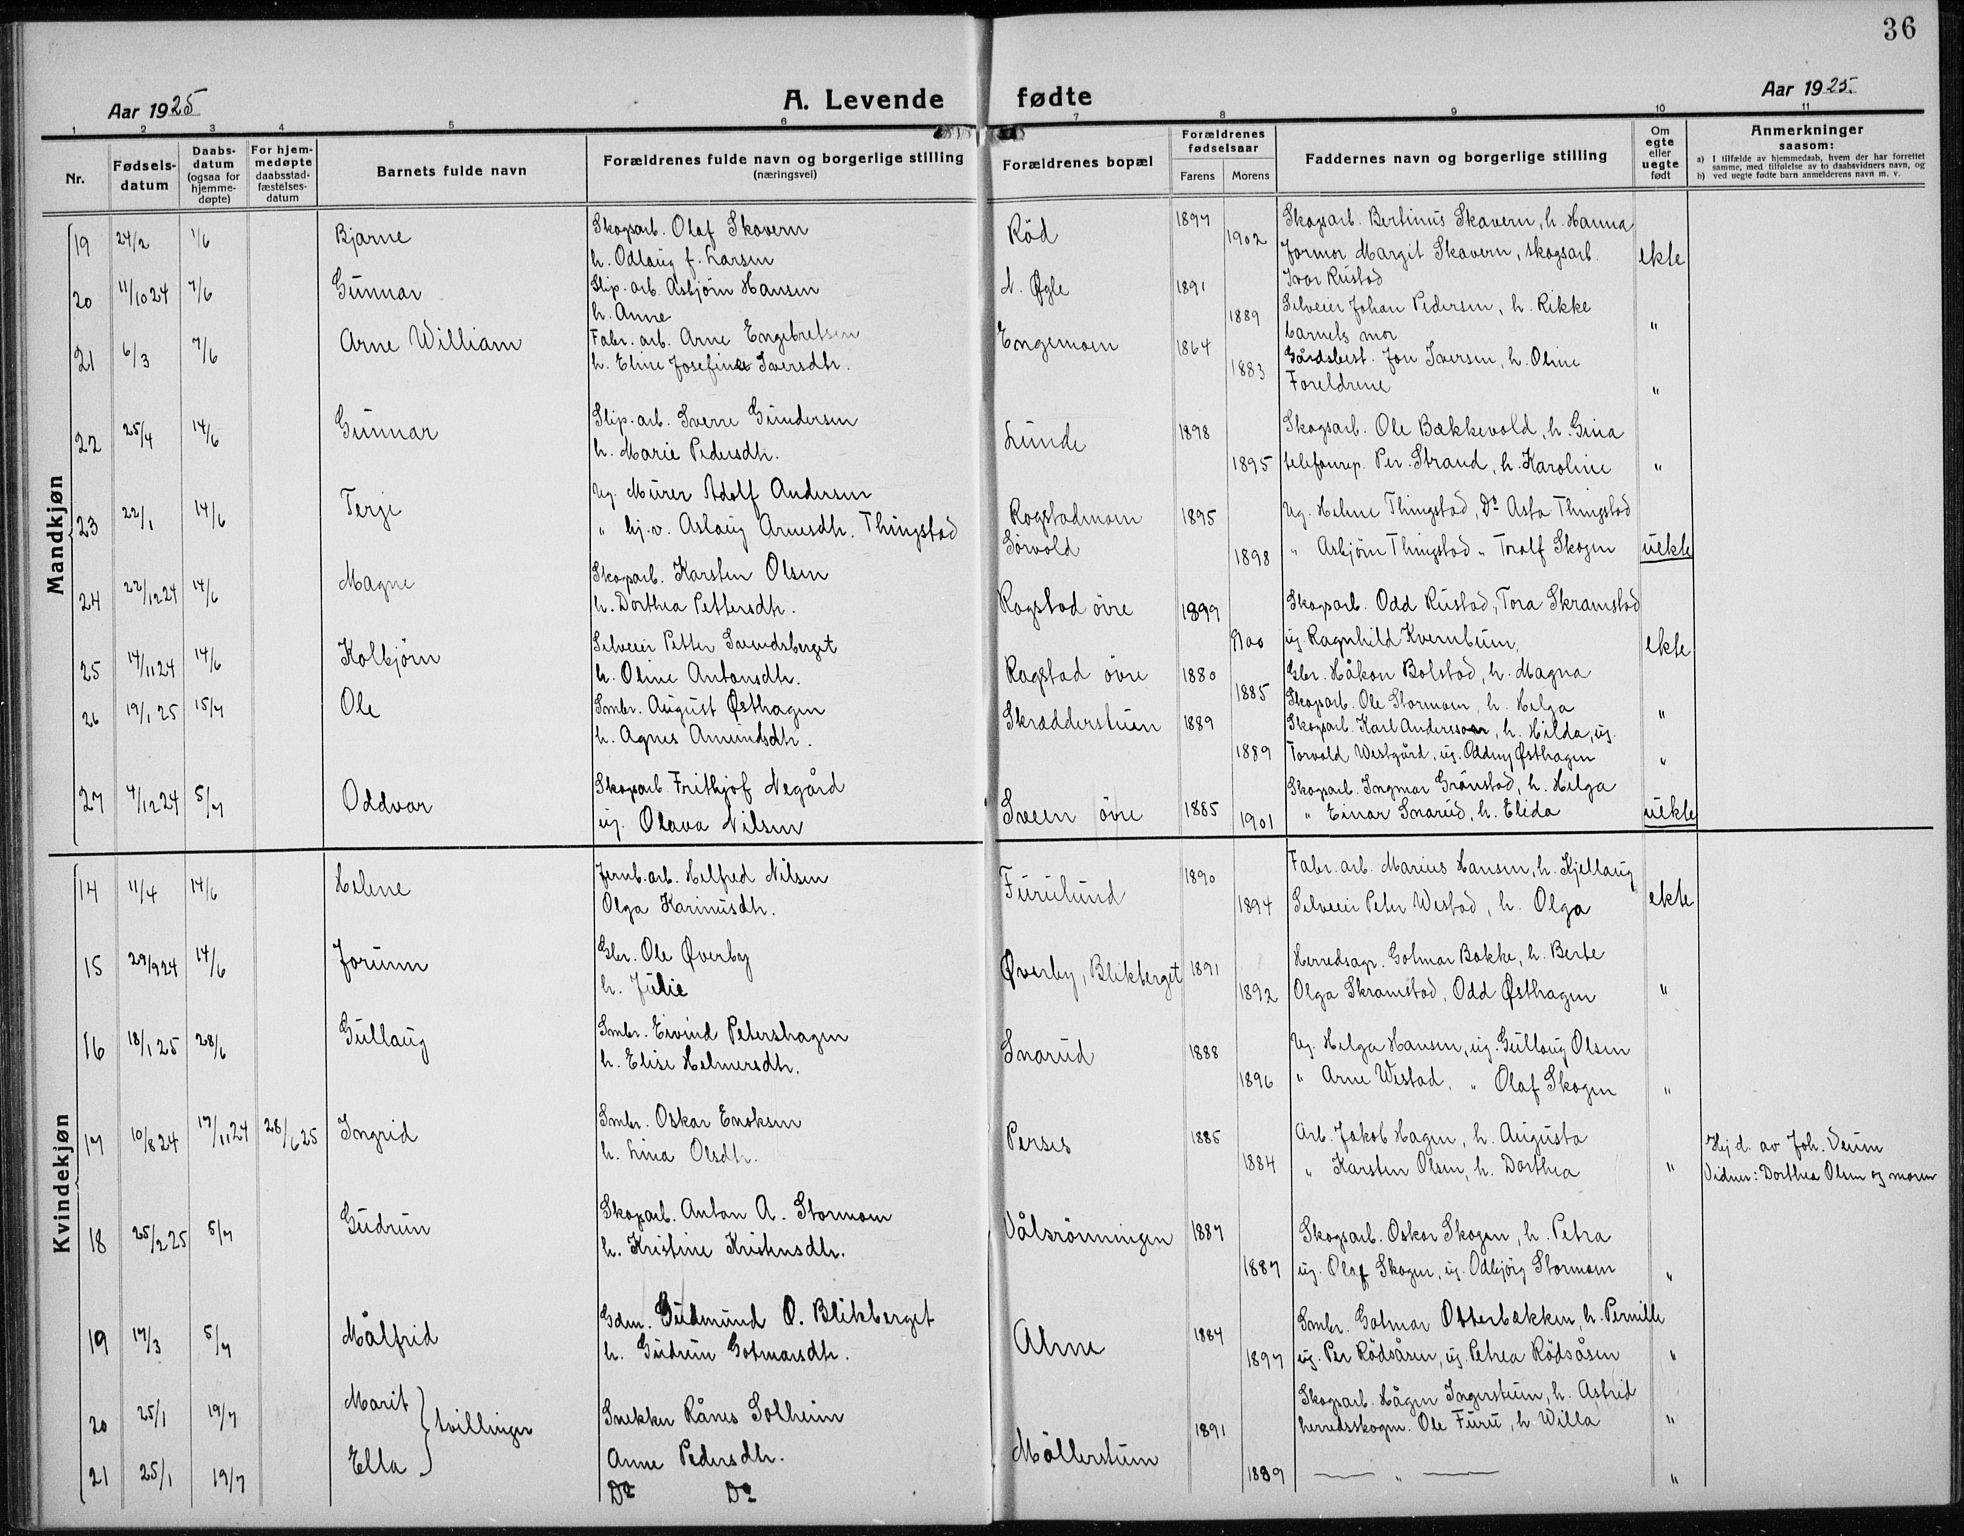 36
Aar 1925
A. Levende fødte
Aar 1925.
1 2 3 4 5 6 7 8 9 10 11
Nr.
Fødsels-
datum
Daabs-
datum
(ogsaa for
hjemme-
døpte)
For hjem-
medøpte
daabsstad-
fæstelses-
datum
Barnets fulde navn
Forældrenes fulde navn og borgerlige stilling
(næringsvei)
Forældrenes bopæl
Forældrenes
fødselsaar
Farens Morens
Faddernes navn og borgerlige stilling
Om
egte
eller
uegte
født
Anmerkninger
saasom:
a) I tilfælde av hjemmedaab, hvem der har forrettet
samme, med tilføielse av to daabsvidners navn, og
b) ved uegte fødte barn anmelderens navn m. v.
Mandkjøn
19 24/2 1/6 Bjarne Skogsarb. Olaf Skavern Rød 1897 Skogsarb. Bertinus Skavern, h. Hanna
h. Odlaug f. Larsen 1902 Jormor Margit Skavern, skogsarb. ekte
Ivar Rustad
20 11/10 24 7/6 Gunnar Slip. arb. Asbjørn Hansen N. Øgle 1891 Selveier Johan Pedersen, h. Rikke
h. Anne 1889 barnets mor "
21 6/3 7/6 Arne William Fabr. arb. Arne Engebretsen Engemoen 1864 Gårdsbest. Jon Iversen, h. Oline
h. Eline Josefine Iversdtr. 1883 Foreldrene "
22 25/4 14/6 Gunnar Slip. arb. Sverre Gundersen Lunde 1898 Skogsarb. Ole Bækkevold, h. Gina
h. Marie Pedersdtr. 1895 telefonrep. Per. Strand, h. Karoline "
23 22/1 14/6 Terje Ug. Murer Adolf Andersen Rogstadmoen 1895 Ug. Helene Thingstad, Do Asta Thingstad
" hj. v. Aslaug Arnesdtr. Thingstad Sörvold 1898 " Asbjörn Thingstad " Toralf Skogen uekte
24 22/12 24 14/6 Magne Skogsarb. Karsten Olsen Rogstad övre 1899 Skogsarb. Odd Rustad, Tora Skramstad
h. Dorthea Pettersdtr. 1900 ug. Ragnhild Kvernbum, ekte
25 14/11 24 14/6 Kolbjörn Selveier Petter Svendsberget Rogstad övre 1880 Gbr. Håkon Bolstad, h. Magna
h. Oline Antonsdtr. 1885 Skogsarb. Ole Stormoen, h. Helga "
26 19/1 25 15/7 Ole Smbr. August Østhagen Skrædderstuen 1889 Skogsarb. Karl Anderssen, h. Hilda, ug.
h. Agnes Amundsdtr. 1889 Torvald Westgård, ug. Oddny Østhagen "
27 7/12 24 5/7 Oddvar Skogsarb. Frithjof Negård Sveen övre 1885 Skogsarb. Ingmar Grönstad, h. Helga
ug. Olava Nilsen 1901 " Einar Snarud, h. Elida uekte
Kvindekjøn
14 11/4 14/6 Helene Jernb. arb. Helfred Nilsen Furulund 1890 Fabr. arb. Marius Hansen, h. Kjellaug
Olga Karinusdtr. 1894 Selveier Peter Westad, h. Olga ekte
15 29/9 24 14/6 Jorunn Gbr. Ole Øverby Øverby, Blikberget 1891 Herredsagr. Gotmar Bakke, h. Berte
h. Julie 1892 Olga Skramstad, Odd Østhagen "
16 18/1 25 28/6 Gullaug Smbr. Eivind Petershagen Snarud 1888 Ug. Helga Hansen, ug. Gullaug Olsen
h. Elise Helmersdtr. 1896 " Arne Westad, " Olaf Skogen "
17 10/8 24 17/11 24 28/6 25 Ingrid Smbr. Oskar Enoksen Perses 1885 Arb. Jakob Hagen, h. Augusta Hjd. av Joh. Veum
h. Lina Olsdtr. 1884 " Karsten Olsen, h. Dorthea " Vidner: Dorthea Olsen og moren
18 25/2 25 5/7 Gudrun Skogsarb. Anton A. Stormoen Vålsrönningen 1887 Skogsarb. Oskar Skogen, h. Petra
h. Kristine Kristensdtr. 1887 ug. Olaf Skogen, ug. Odbjörg Stormoen "
19 17/3 5/7 Målfrid Gdm. Gudmund O. Blikberget Alme 1884 Smbr. Gotmar Otterbækken, h. Pernille
h. Gudrun Gotmarsdtr. 1897 ug. Per Rödsåsen, ug. Petrea Rödsåsen "
20 25/1 19/7 Marit } tvillinger Snekker Rånes Solheim Möllerstuen 1891 Skogsarb. Hågen Ingerstuen, h. Astrid
herredsskogm. Ole Furu, h. Willa "
21 25/1 19/7 Ella Anne Pedersdtr. 1889 — " — "
Do Do